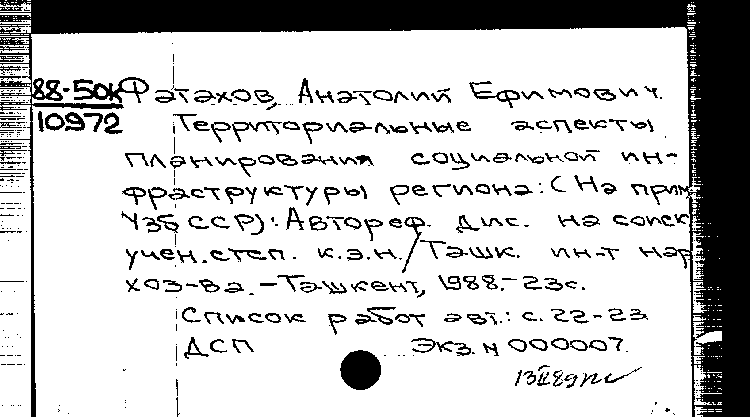 88-50к Фатахов, Анатолий Ефимович.
10972 Территориальные аспекты
планирования социальной ин-
фраструктуры региона: (На прим.
УзбССР): Автореф. дис. на соиск.
учен. степ. к.э.н. / Ташк. ин-т нар.
хоз-ва. – Ташкент, 1988. – 23с.
Список работ авт.: с. 22-23
ДСП Экз. N 000007.